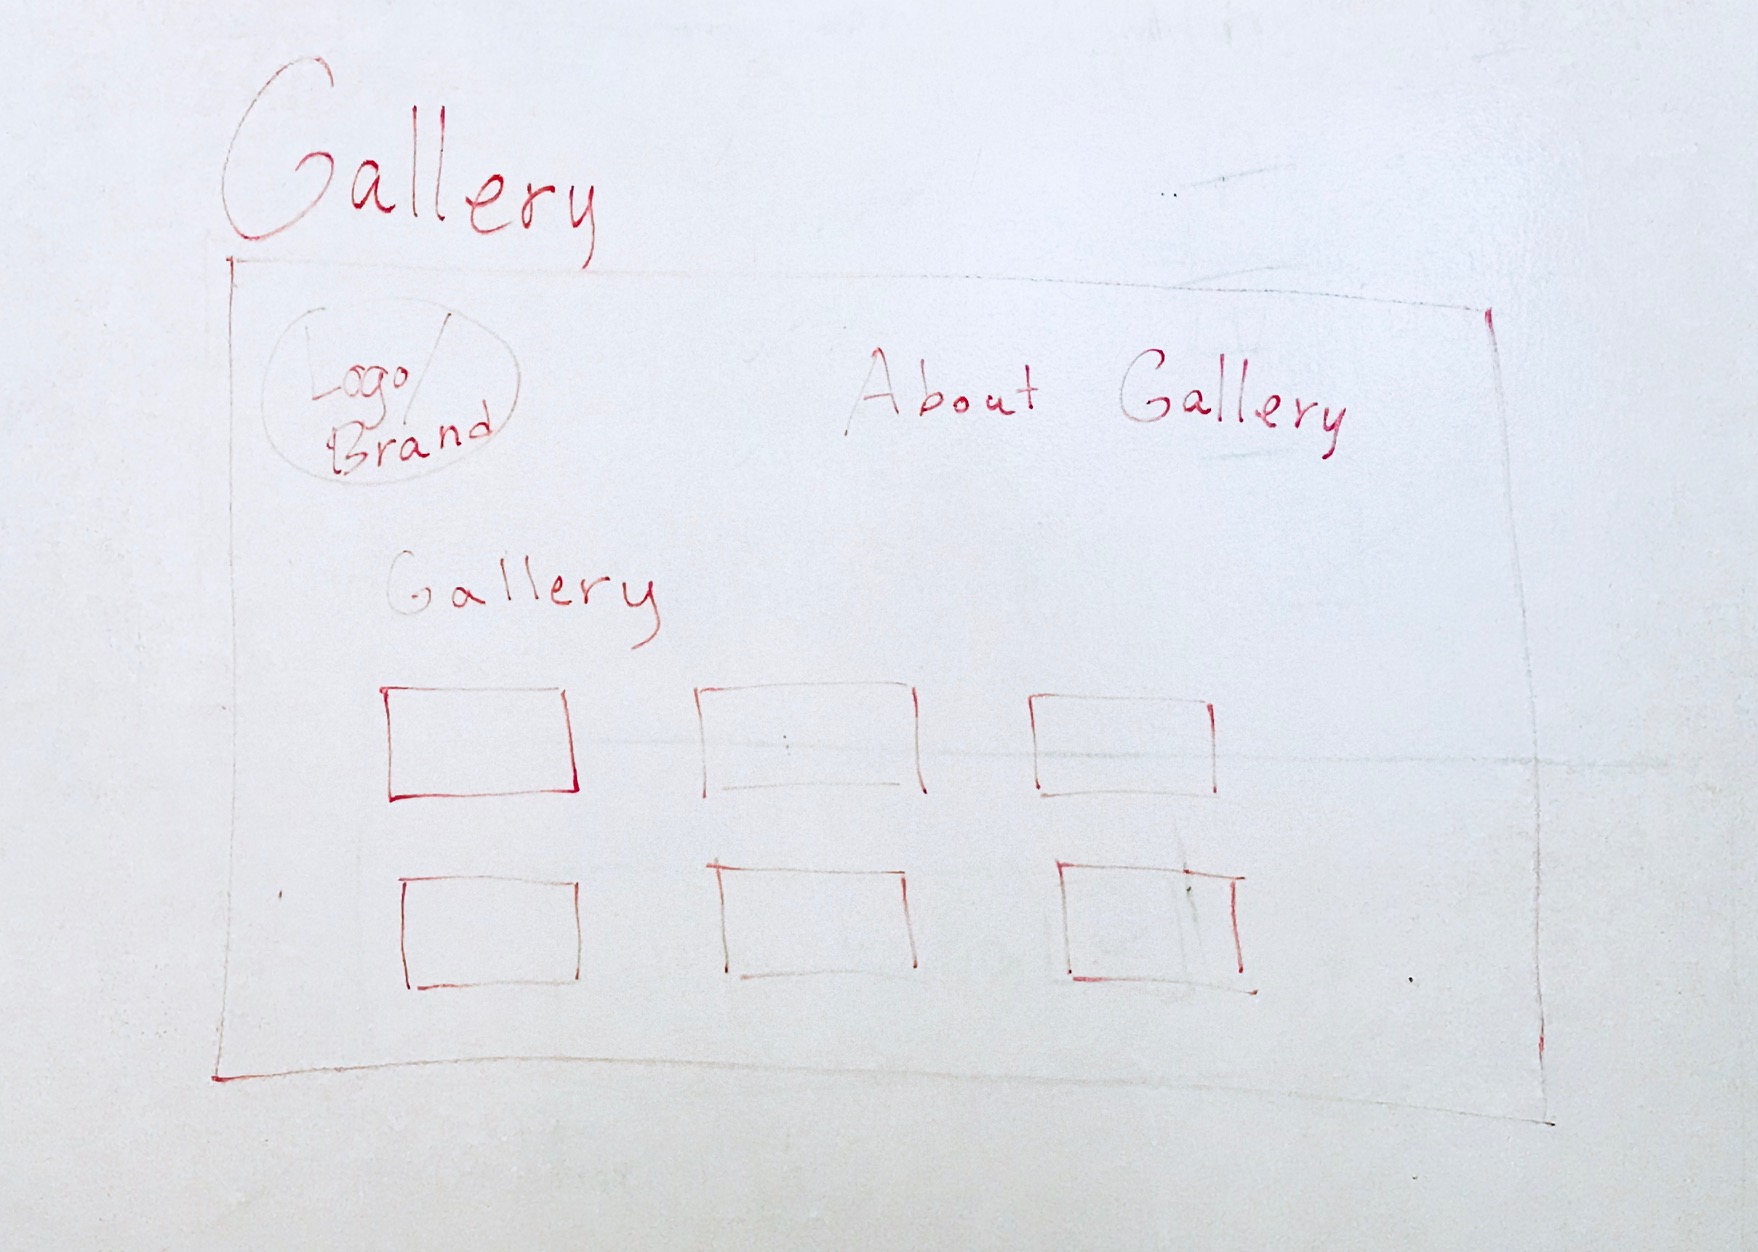 Gallery
Logo/
Brand
About Gallery
Gallery